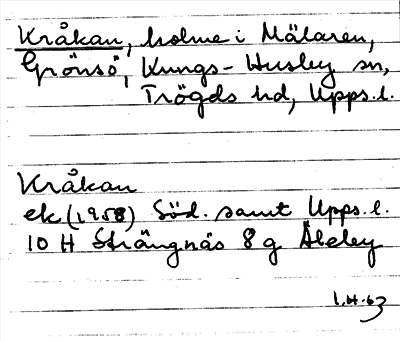 Kråkan, holme i Mälaren,
Grönsö, Kungs-Husby sn,
Trögds hd, Upps.l.
Kråkan
ek (1958) Söd. samt Upps.l.
10 H Strängnäs 8 g Åleby